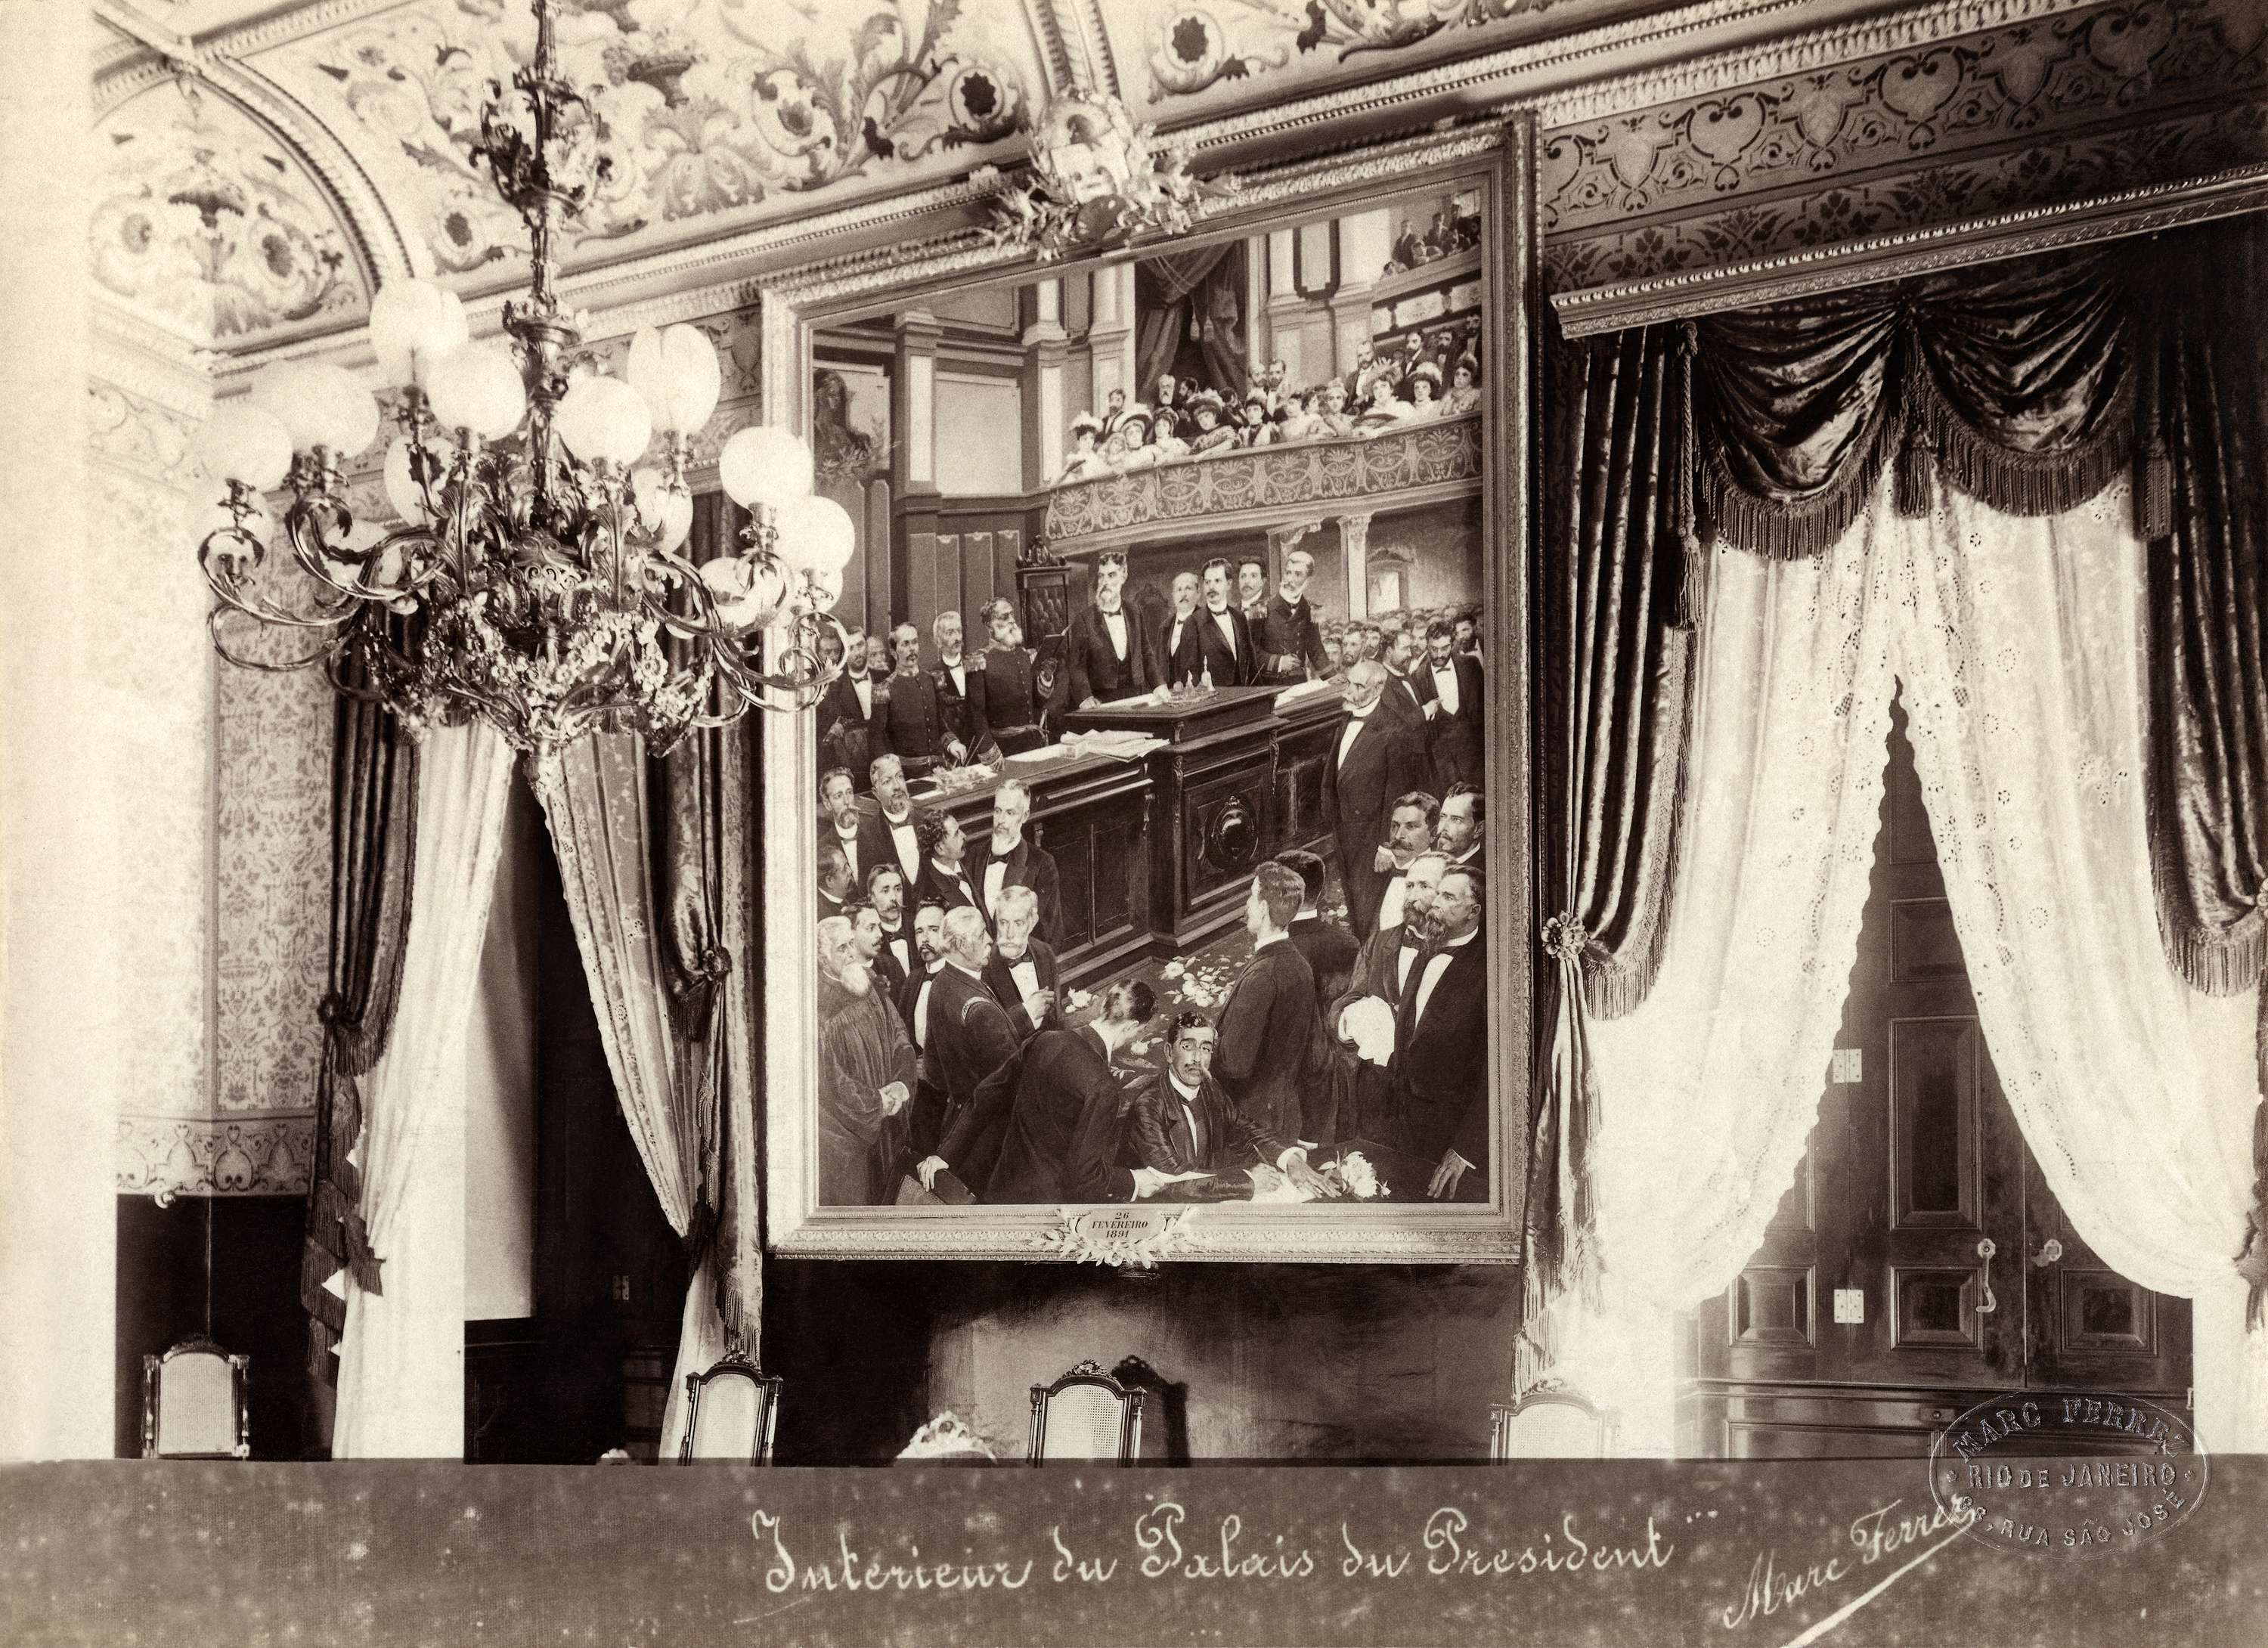 26
FEVEREIRO
1891
Interieur du Palais du President
Marc Ferrez
MARC FERREZ
RIO DE JANEIRO
RUA SÃO JOSÉ